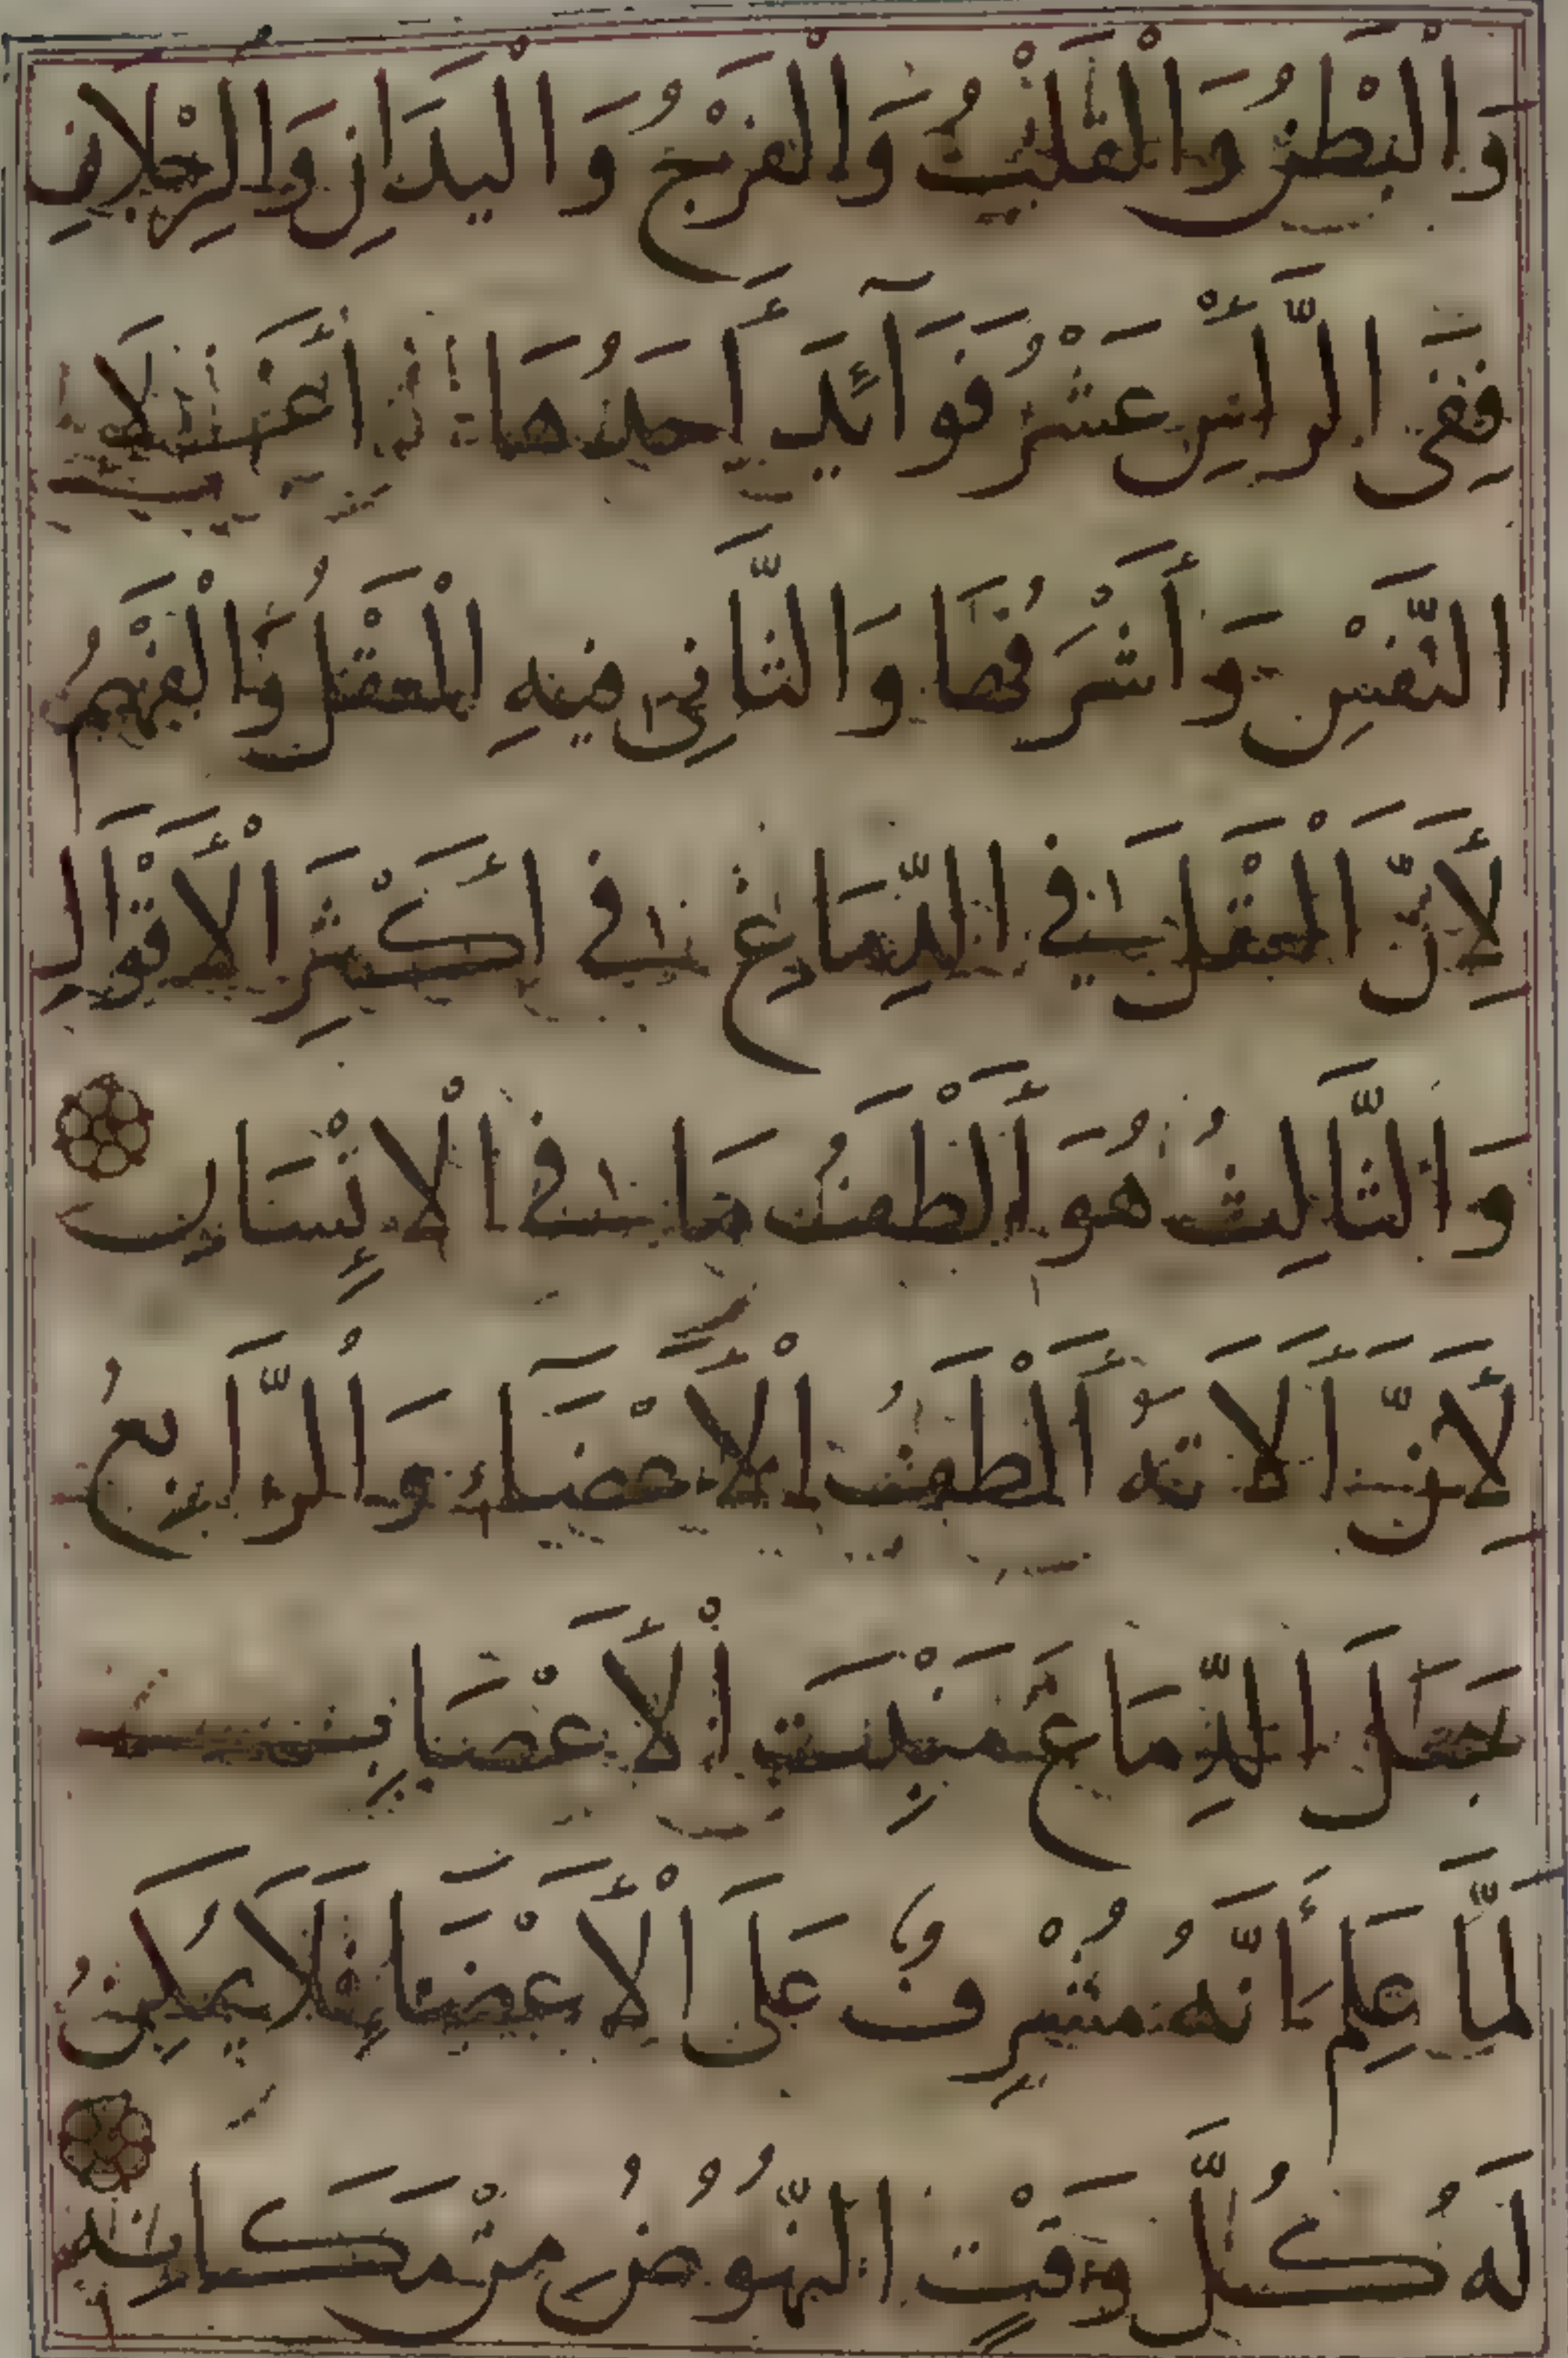 وَالْبَطْنُ وَالْقَلْبُ وَالْفَرْجُ وَالْيَدَانِ وَالرِّجْلَانِ
فَفِى الرَّأْسِ عَشْرُ فَوَآئِدَ أَحَدُهَا أَعْلَا
النَّفْسِ وَأَشْرَفُهَا وَالثَّانِى فِيهِ الْعَقْلُ وَالْفَهْمُ
لِأَنَّ الْعَقْلَ فِى الدِّمَاغِ فِى أَكْثَرِ الْأَقْوَالِ
وَالثَّالِثُ هُوَ أَلْطَفُ مَا فِى الْإِنْسَانِ
لِأَنَّ أَلْطَفُ الْأَعْضَآءِ وَالرَّابِعُ
جَعَلَ الدِّمَاغَ مَنْبِتَ الْأَعْصَابِ
لَمَّا عَلِمَ أَنَّهُ مُشْرِفٌ عَلَى الْأَعْضَاءِ فَلَا يُمْكِنُ
لَهُ كُلَّ وَقْتٍ النُّهُوضُ مِنْ مَكَانِهِ